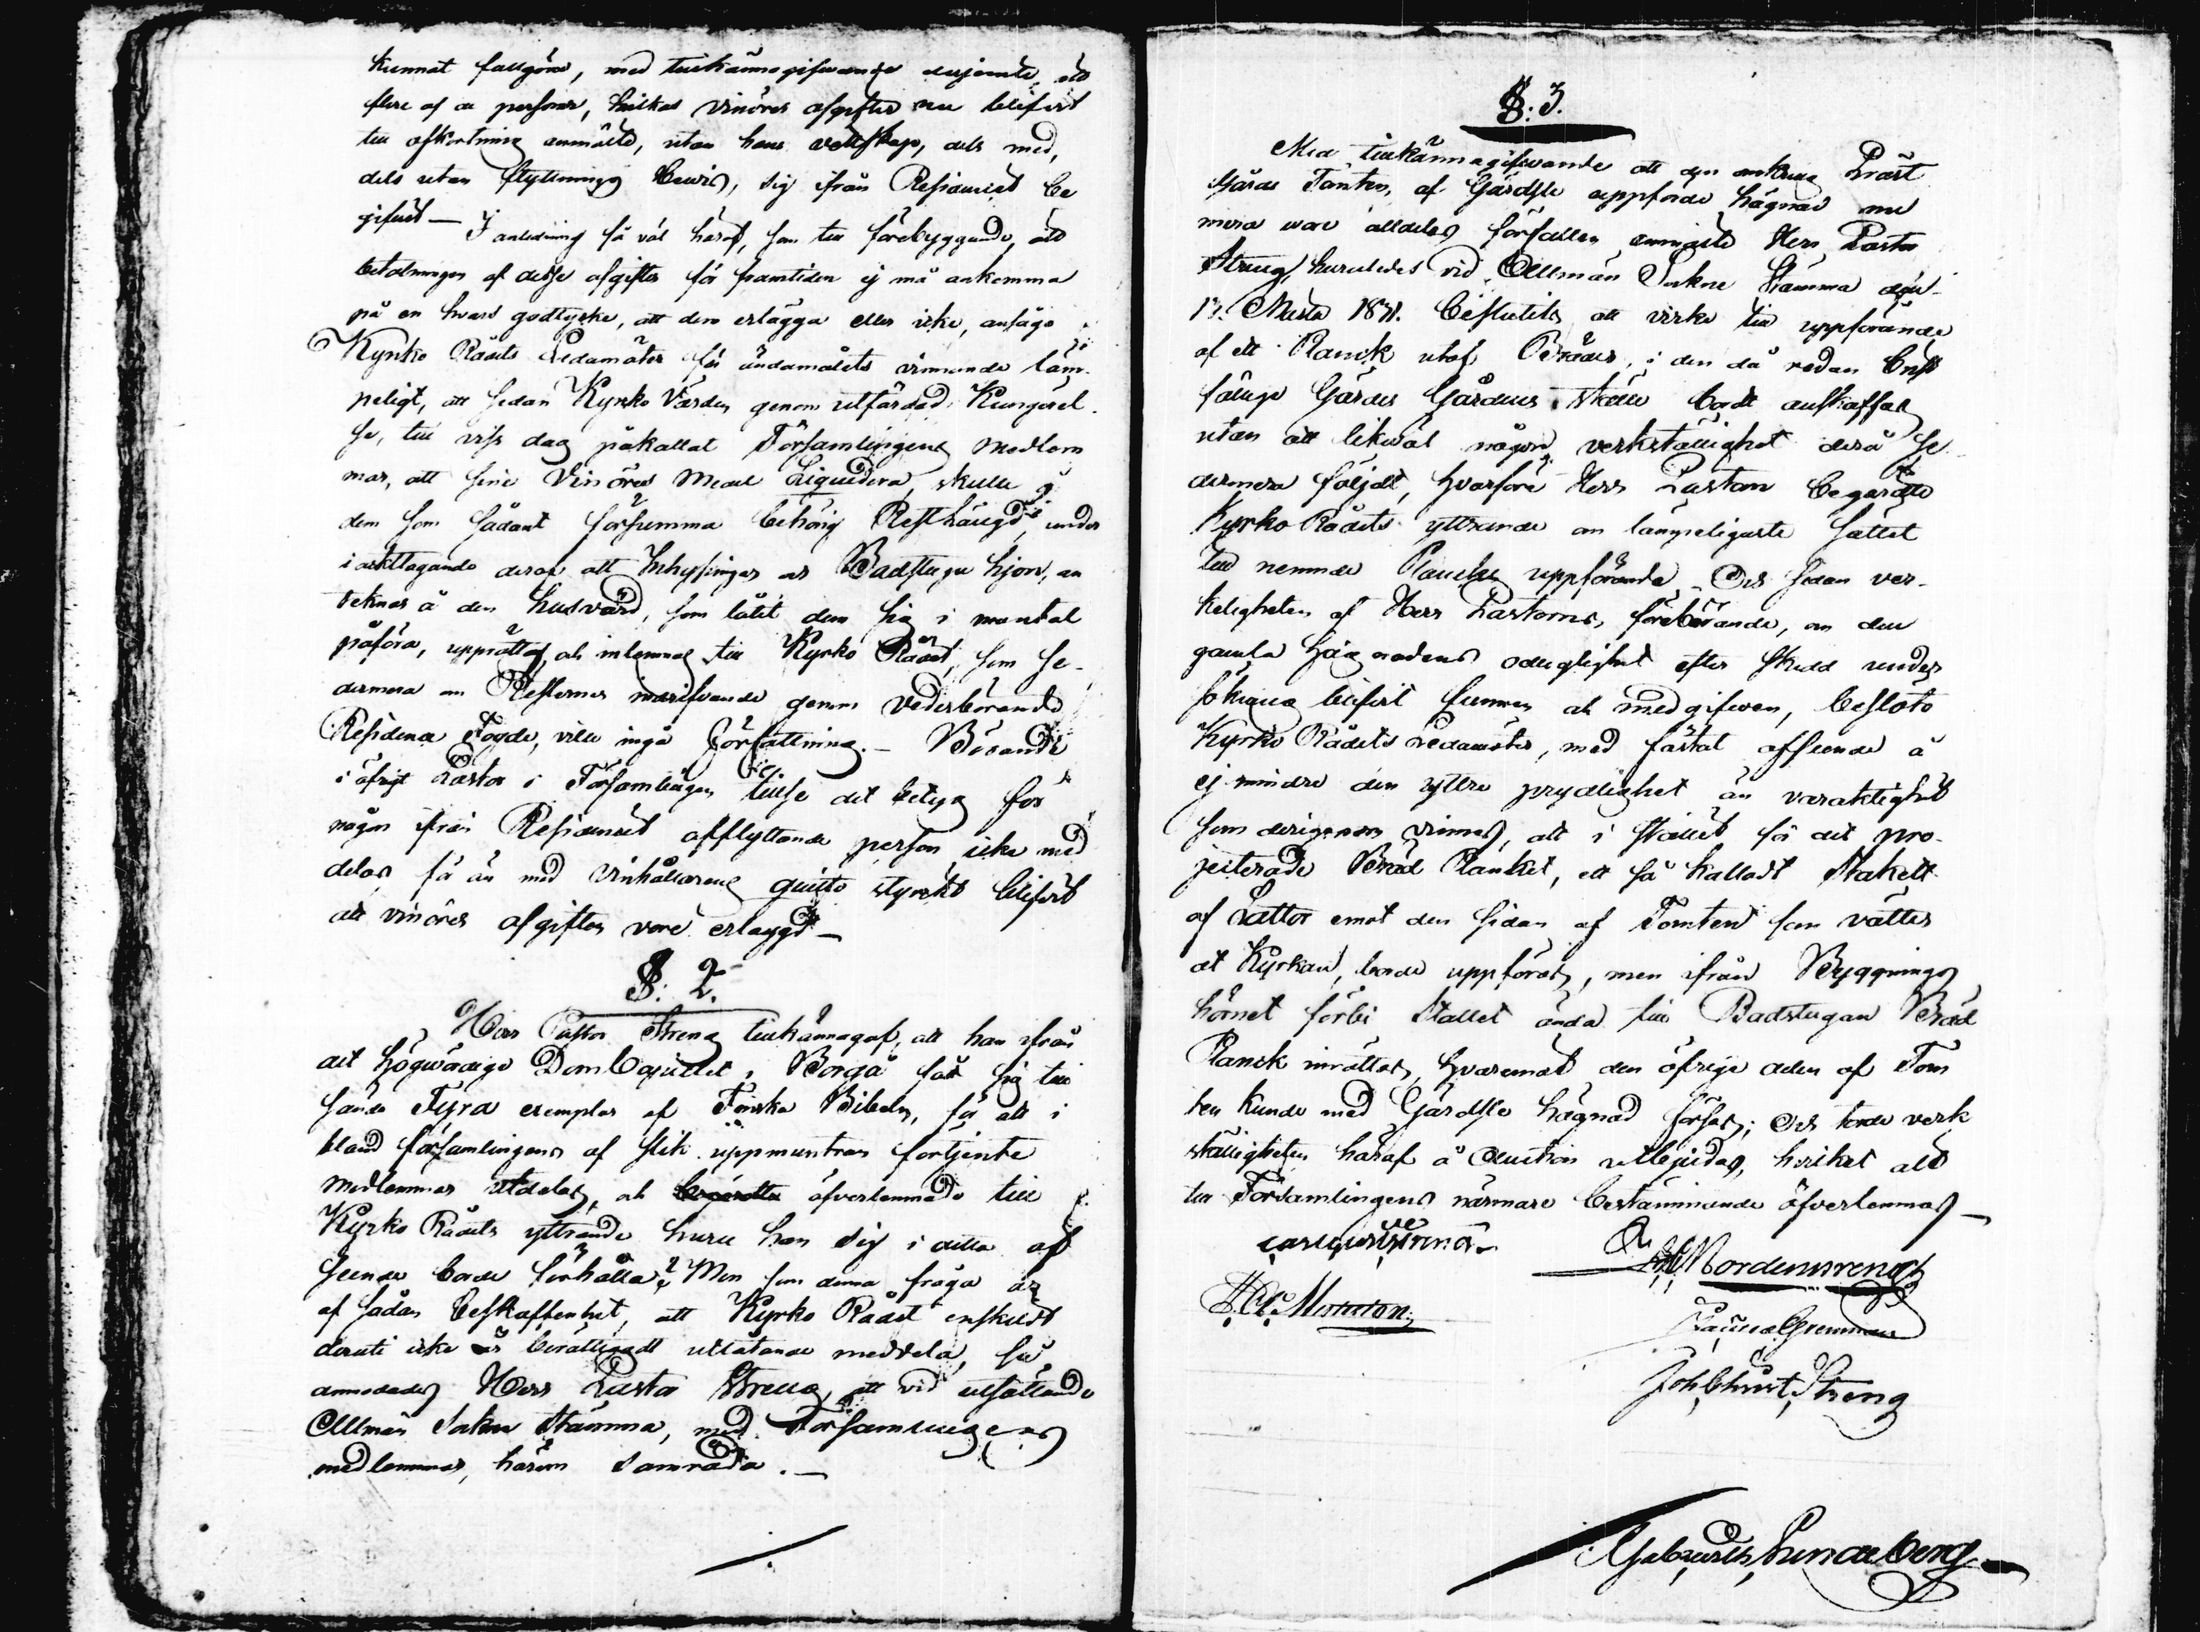 kunnat fullgöra, med tillkännagifwande derjemte, att
flere af de personer, hvilkas vinöres afgifter nu blifvit
till afkortning anmälte, utan hans vettskap, dels med,
dels utan flyttnings Bewis, sig ifrån Residenset be
gifvit — I anledning så väl häraf, som till förebyggande, att
betalningen af desse afgifter för framtiden ej må ankomma
på en hvars godtycke, att dem erlägga eller icke, ansågo
Kyrko Rådets Ledamöter för ändamålets vinnande lämp
peligt, att sedan Kyrko Värden genom utfärdad Kungörel-
se, till viss dag påkallat Församlingens medlem
mar, att sine Vinöres Medel Liquidera, skulle å
dem som sådant försumma behörig Restlängd, under
iakttagande deraf att Inhysingar och Badstugu hjon, an
teknas å den husvärd, som låtit dem sig i mantal
påföra, upprättas och inlemnas till Kyrko Rådet, som se-
dermera om Resternes utgifvande genom vederbörande
Residence Fogde, ville ingå författning. — Börande
i öfrigt Pastor i Församlingen tillse det betyg för
någon ifrån Residenset afflyttande person icke med
delas, för än med Vinhållarens quitto styrkt blifvit
att vinöres afgiften vore erlagd —
§: 2.
Herr Pastor Streng tillkännagaf, att han ifrån
det högwördige DomCapitlet i Borgå fått sig till
sände Fyra exemplar af Finska Bibeln, för att i
bland församlingens af slik uppmuntran förtjente
medlemmar utdelas, och öfverlemnade till
Kyrko Rådets yttrande huru han sig i detta af
seende borde förhålla? Men som denna fråga är
af sådan beskaffenhet, att Kyrko Rådet enskildt
deruti icke är berättigadt utlåtande meddela, så
anmodades Herr Pastor Streng, att vid utsättande
Allmän Sokne Stämma, med Församlingens
medlemmar, härom samråda. —
§: 3.
Med tillkännagifwande att den omkring Präst
Gårds Tomten, af Gärdsle uppförde hägnad nu
mera vore alldeles förfallen anmälte Herr Pastor
Streng, huruledes vid Allmän Sokne Stämma den
Martii 1831. beslutits att virke till uppförande
af ett Planck utaf Bräder, i den då redan
fällige Gärdes Gårdens ställe bordt anskaffas
utan att likväl någon verkställighet derå se
dermera följdt, hvarföre Herr Pastorn begärdte
Kyrko Rådets yttrande om lämpeligaste sättet
till nemnde Planckes uppförande – Och sedan ver-
keligheten af Herr Pastorns förebärande, om den
gamla hägnadens oduglighet efter skedd under
sökning blifvit funnen och medgifven, besloto
Kyrko Rådets Ledamöter, med fästat afseende å
ej mindre den yttre prydlighet än varaktighet
som derigenom vinnes, att i stället för det pro-
jecterade Bräd Planket, ett så kalladt Stakett
af Lattor emot den sidan af Tomten som vätter
åt Kyrkan, borde uppföras, men ifrån Byggnings
hörnet förbi Stallet ända till Badstugan Bräd
Planck inrättas, hvaremot den öfrige delen af Tom
ten kunde med Gärdsle hägnad förses; Och borde verk
ställigheten häraf å Auction utbjudas, hvilket allt
till Församlingens närmare bestämmande öfverlemnas —
Nordenswreng
Joh Christ Streng